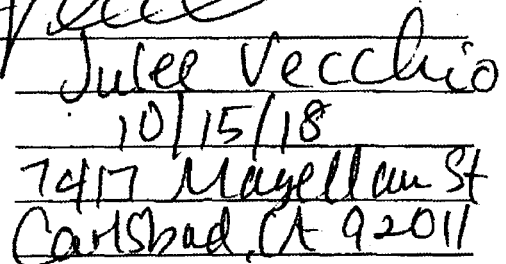 Julee Vecchio
10/15/18
7417 Magellan St
Carlsbad, CA 92011